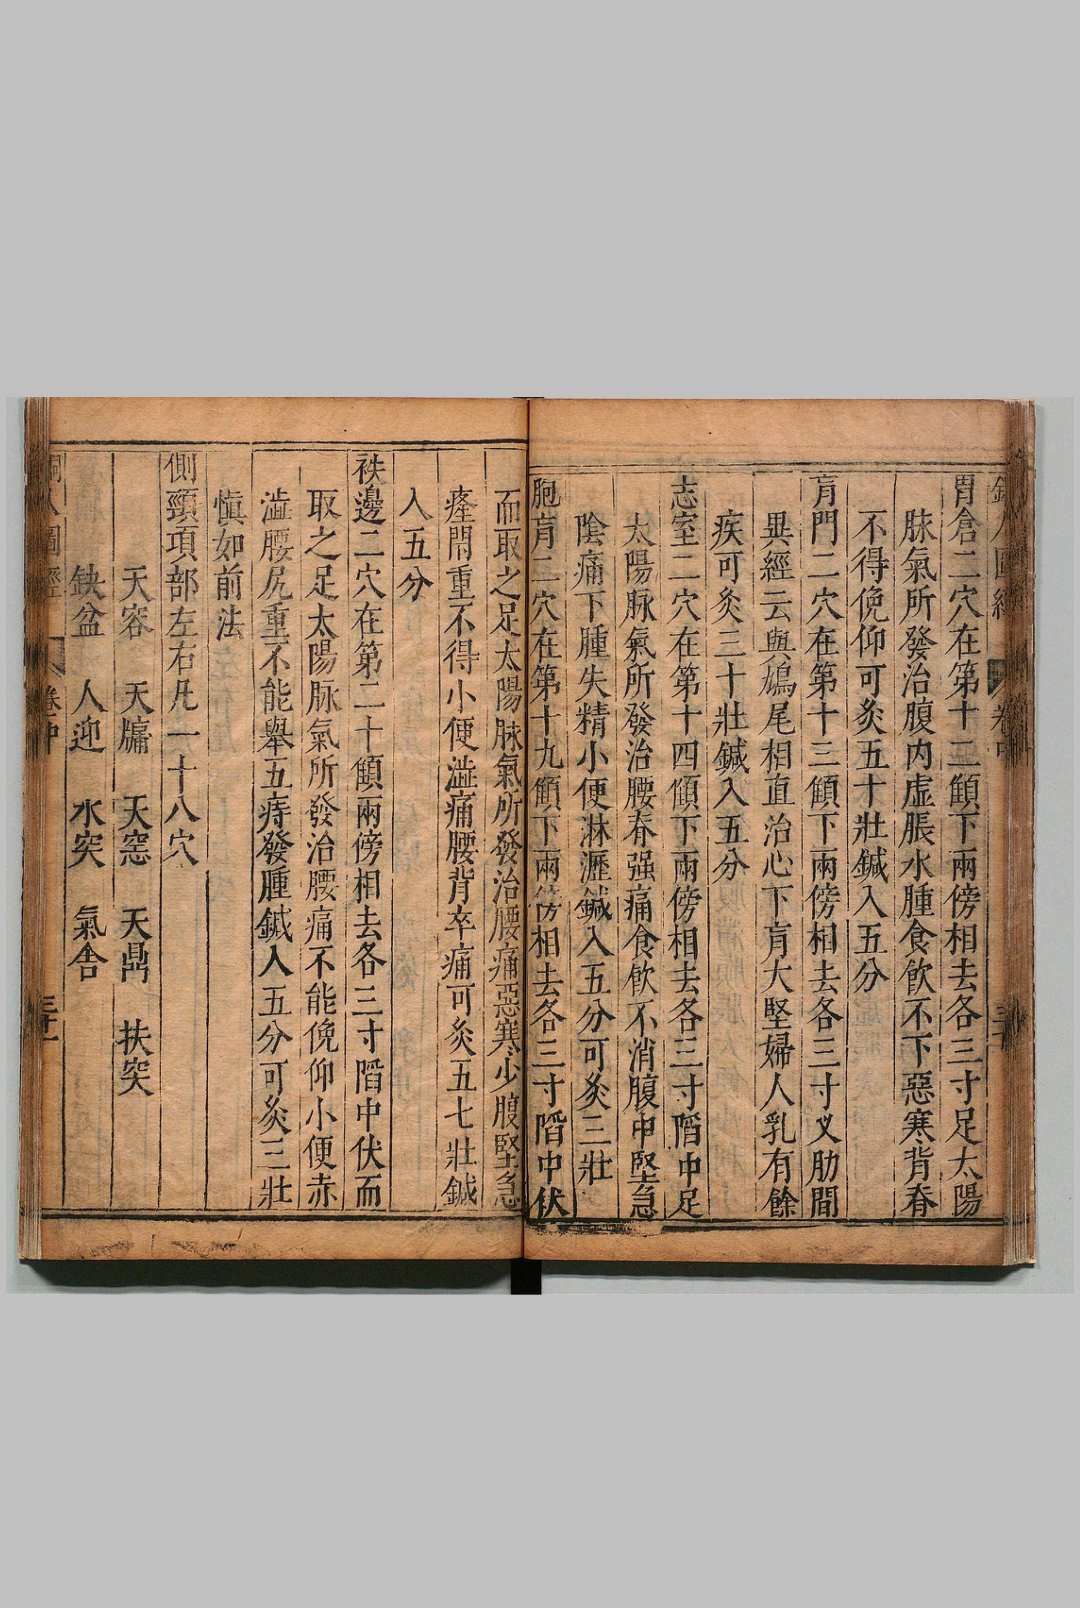 胃倉二穴在第十二顀下兩傍相去各三寸足太陽
脉氣所發治腹内虚脹水腫食飲不下惡寒背脊
不得俛仰可灸五十壯鍼入五分
肓門二穴在第十三顀下兩傍相去各三寸义肋間
異經云與鳩尾相直治心下肓大堅婦人乳有餘
疾可灸三十壯鍼入五分
志室二穴在第十四顀下兩傍相去各三寸陷中足
太陽脉氣所發治腰脊强痛食飲不消腹中堅急
陰痛下腫失精小便淋瀝鍼入五分可灸三壯
胞肓二穴在第十九顀下兩傍相去各三寸陷中伏
而取之足太陽脉氣所發治腰痛惡寒少腹堅急
癃閉重不得小便澁痛腰背卒痛可灸五七壯鍼
入五分
秩邊二穴在第二十顀兩傍相去各三寸陷中伏而
取之足太陽脉氣所發治腰痛不能俛仰小便赤
澁腰尻重不能舉五痔發腫鍼入五分可灸三壯
慎如前法
側頸項部左右凡一十八穴
天容 天牖 天窓 天鼎 扶突
缺盆 人迎 水突 氣舎
人圖經 卷中 三十一